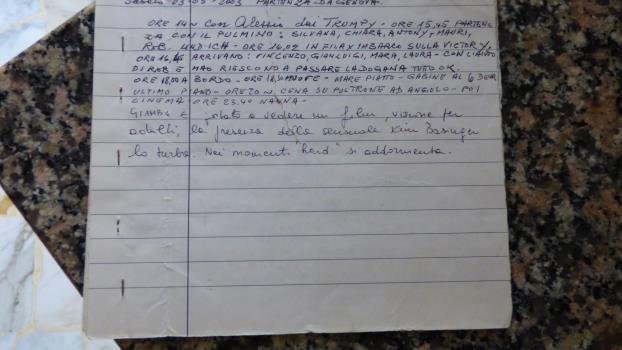 Sabato 23-05-2003 PARTENZA DA GENOVA.
ORE 14 ~ CON Alessio dai TRUMPY - ORE 15,45 PARTEN
ZA CON IL PULMINO: SILVANA, CHIARA, ANTONY, MAURI,
ROB. ORE 16,02 IN FILA X IMBARCO SULLA VICTORY,
ORE 16,45 ARRIVANO: VINCENZO, GIANLUIGI, MARA, LAURA - CON L'AIUTO
DI ROB E MAO RIESCONO A PASSARE LA DOGANA TUTTO OK.
ORE 18,00 A BORDO - ORE 18,30 - MARE PIATTO - CABINE AL 6
ULTIMO PIANO - ORE 20 CENA SU POLTRONE AD ANGOLO - POI
CINEMA ORE 23.40 NANNA -
è andato a vedere un film, visione per
adulti, la presenza della sensuale Kim Basinger
lo turba. Nei momenti "hard" si addormenta.